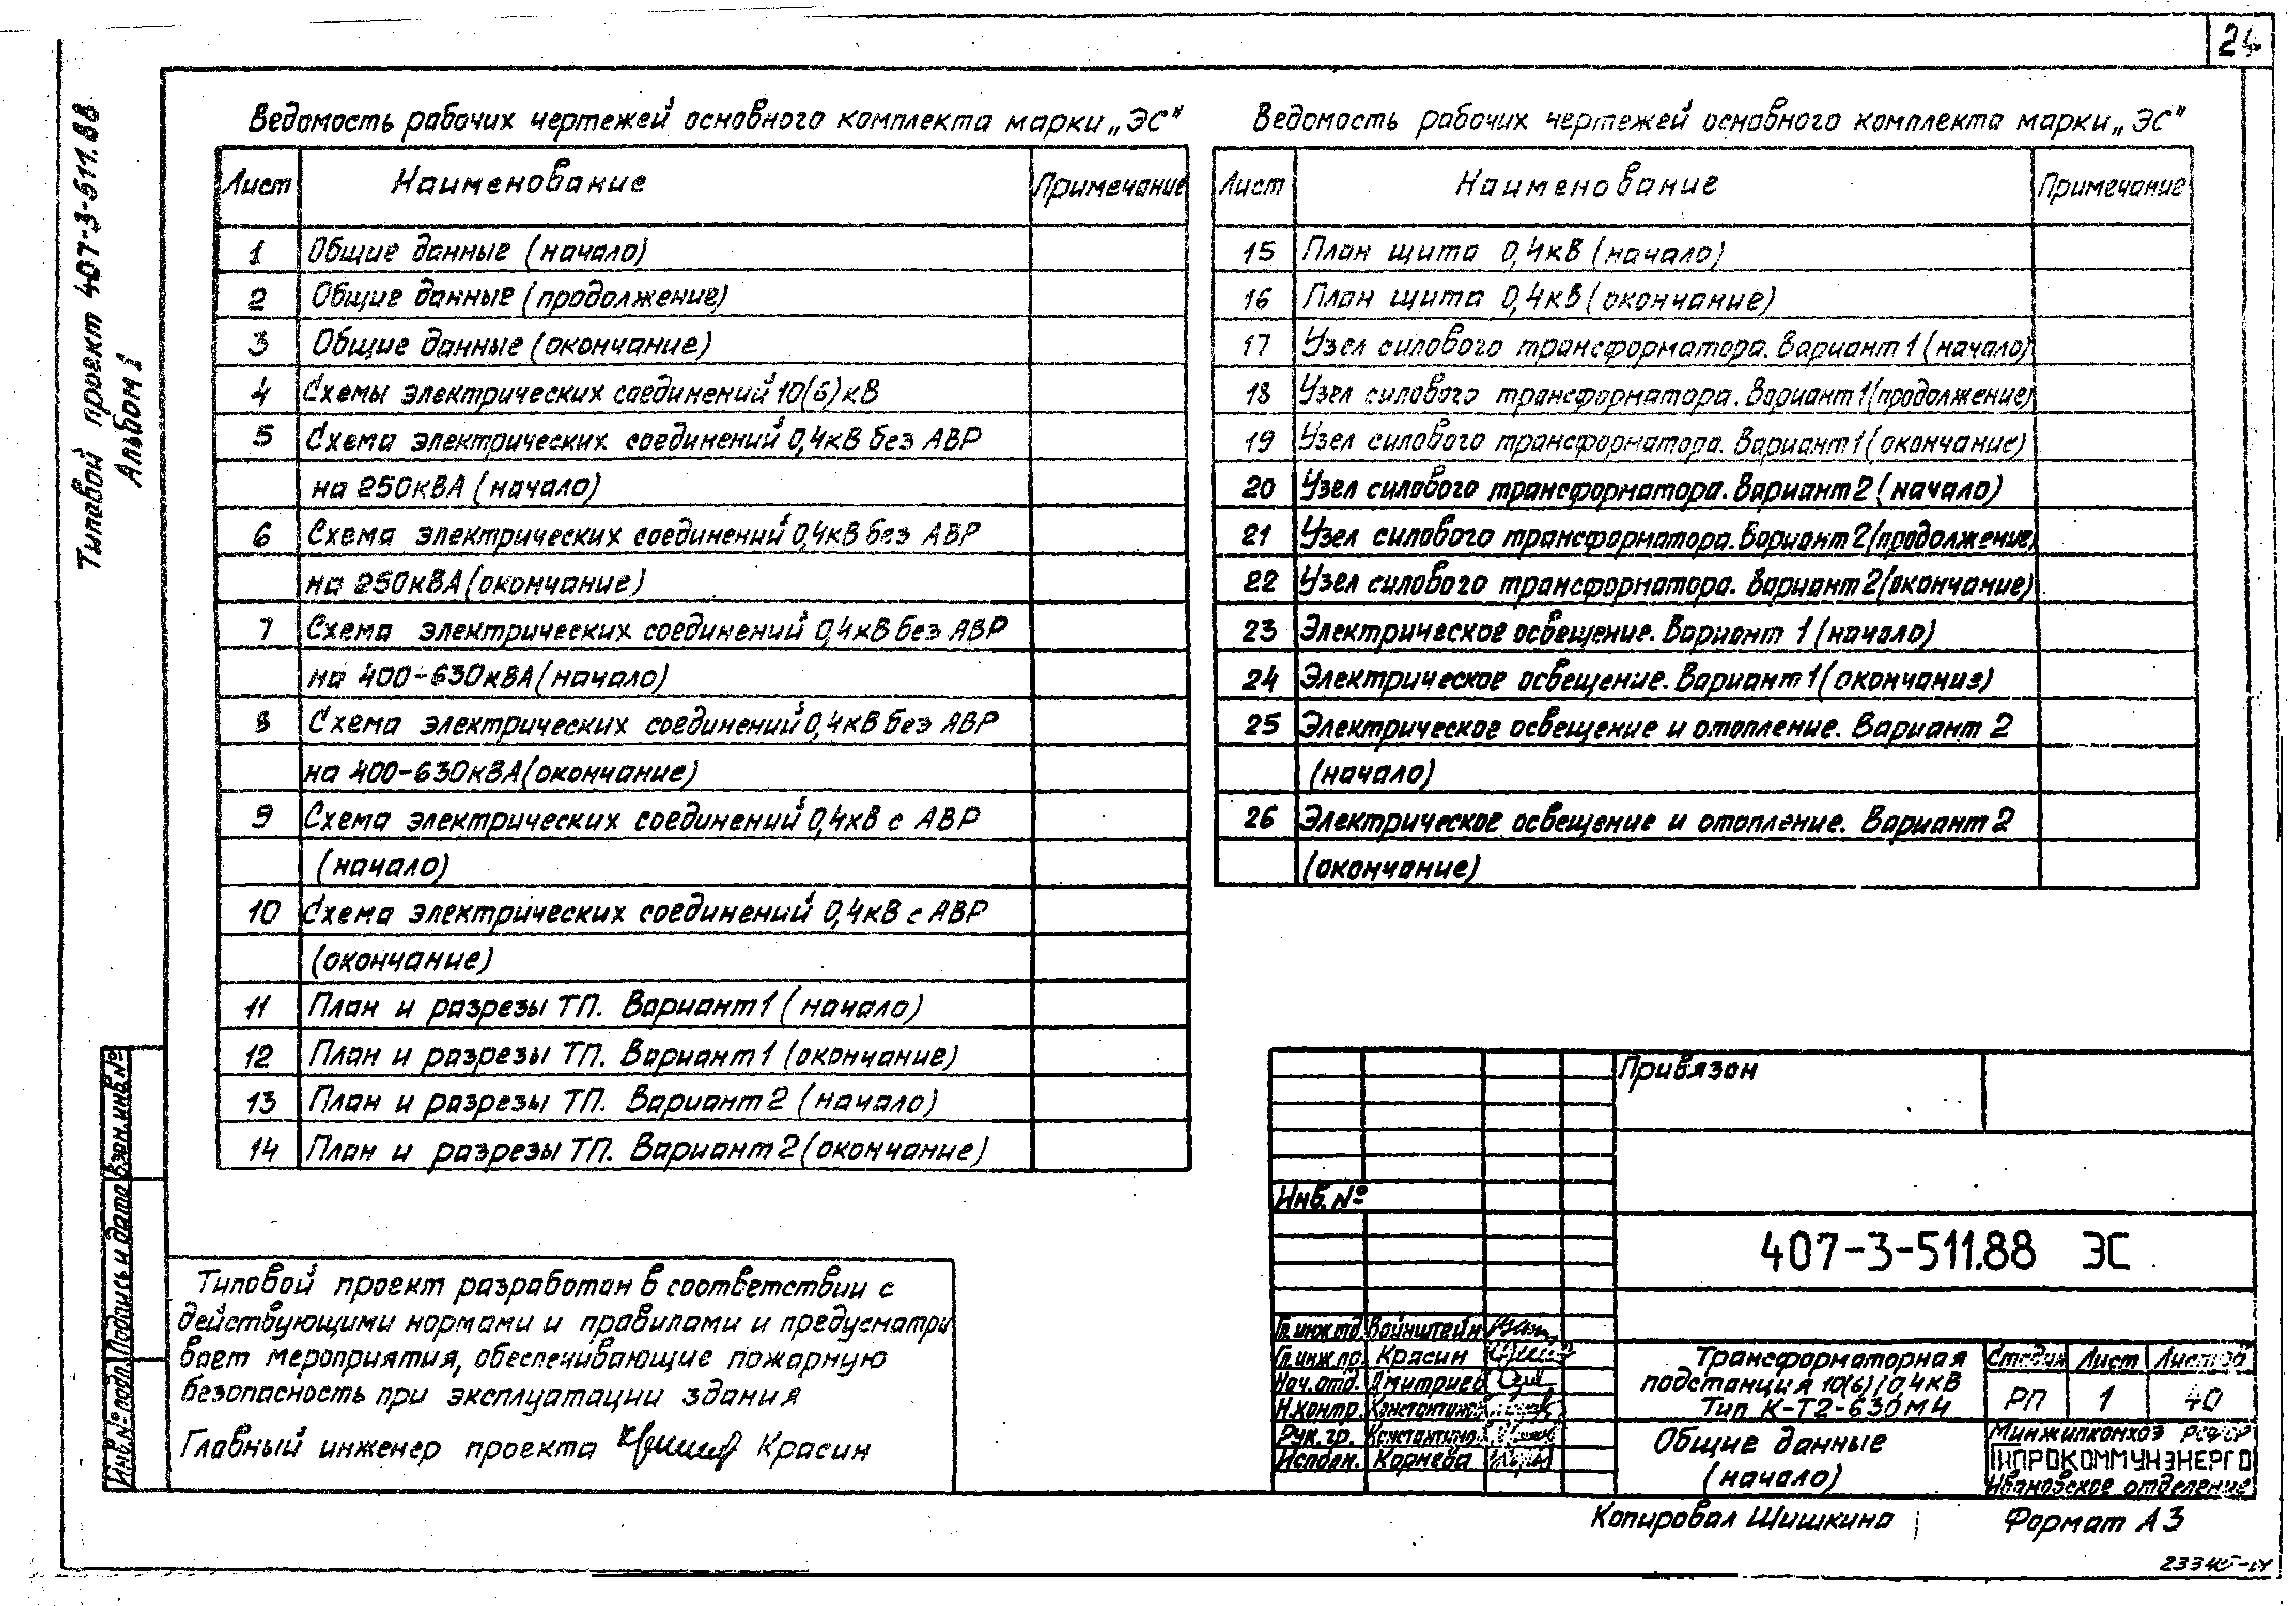 24
Типовой проект 407-3-511.88
Альбом I
Ведомость рабочих чертежей основного комплекта марки „ЭС"
Лист Наименование Примечание
1 Общие данные (начало)
2 Общие данные (продолжение)
3 Общие данные (окончание)
4 Схемы электрических соединений 10(6)кВ
5 Схема электрических соединений 0,4кВ без АВР
на 250кВА (начало)
6 Схема электрических соединений 0,4кВ без АВР
на 250кВА (окончание)
7 Схема электрических соединений 0,4кВ без АВР
на 400-630кВА (начало)
8 Схема электрических соединений 0,4кВ без АВР
на 400-630кВА (окончание)
9 Схема электрических соединений 0,4кВ с АВР
(начало)
10 Схема электрических соединений 0,4кВ с АВР
(окончание)
11 План и разрезы ТП. Вариант 1 (начало)
12 План и разрезы ТП. Вариант 1 (окончание)
13 План и разрезы ТП. Вариант 2 (начало)
14 План и разрезы ТП. Вариант 2 (окончание)
Ведомость рабочих чертежей основного комплекта марки „ЭС"
Лист Наименование Примечание
15 План щита 0,4кВ (начало)
16 План щита 0,4кВ (окончание)
17 Узел силового трансформатора. Вариант 1 (начало)
18 Узел силового трансформатора. Вариант 1 (продолжение)
19 Узел силового трансформатора. Вариант 1 (окончание)
20 Узел силового трансформатора. Вариант 2 (начало)
21 Узел силового трансформатора. Вариант 2 (продолжение)
22 Узел силового трансформатора. Вариант 2 (окончание)
23 Электрическое освещение. Вариант 1 (начало)
24 Электрическое освещение. Вариант 1 (окончание)
25 Электрическое освещение и отопление. Вариант 2
(начало)
26 Электрическое освещение и отопление. Вариант 2
(окончание)
Типовой проект разработан в соответствии с
действующими нормами и правилами и предусматри
вает мероприятия, обеспечивающие пожарную
безопасность при эксплуатации здания
Главный инженер проекта Красин
Взам.инв.№
Подпись и дата
Инв.№ подл.
Привязан
Инв.№
407-3-511.88 ЭС
Гл.инж.отд. Вайнштейн
Гл.инж.пр. Красин
Нач.отд. Дмитриев
Н.контр. Константинов
Рук.гр. Константинов
Исполн. Корнева
Трансформаторная
подстанция 10(6)/0,4кВ
Тип К-Т2-630М4
Стадия Лист Листов
РП 1 40
Общие данные
(начало)
Минжилкомхоз РСФСР
ГИПРОКОММУНЭНЕРГО
Ивановское отделение
Копировал Шишкина
Формат А3